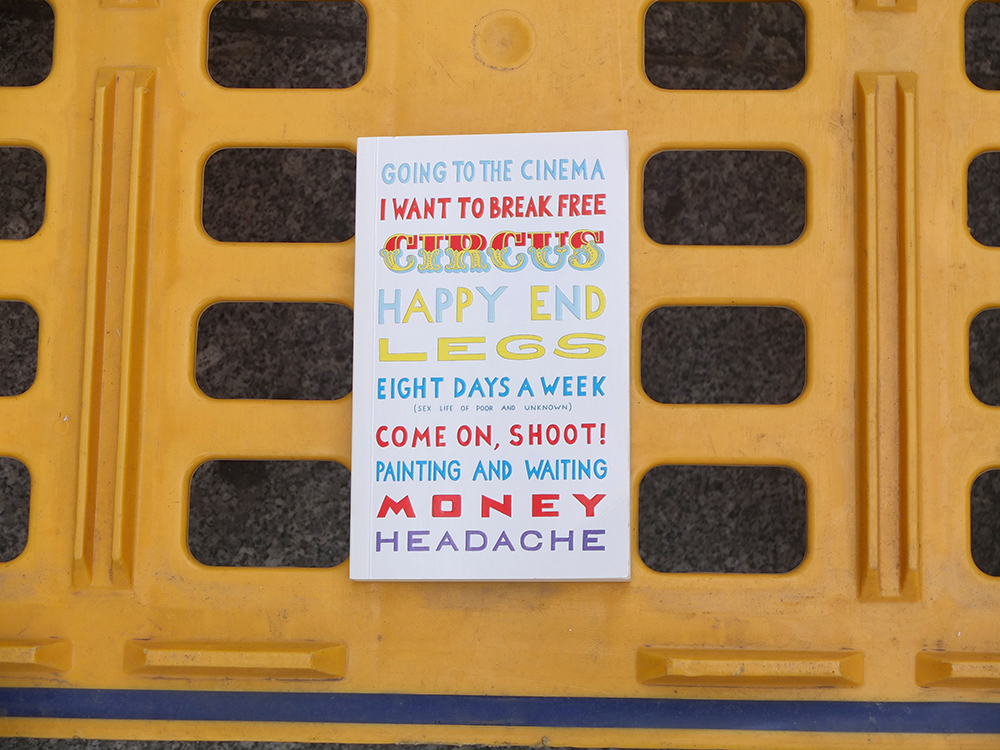 GOING TO THE CINEMA
I WANT TO BREAK FREE
CIRCUS
HAPPY END
LEGS
EIGHT DAYS A WEEK
(SEX LIFE OF POOR AND UNKNOWN)
COME ON, SHOOT!
PAINTING AND WAITING
MONEY
HEADACHE